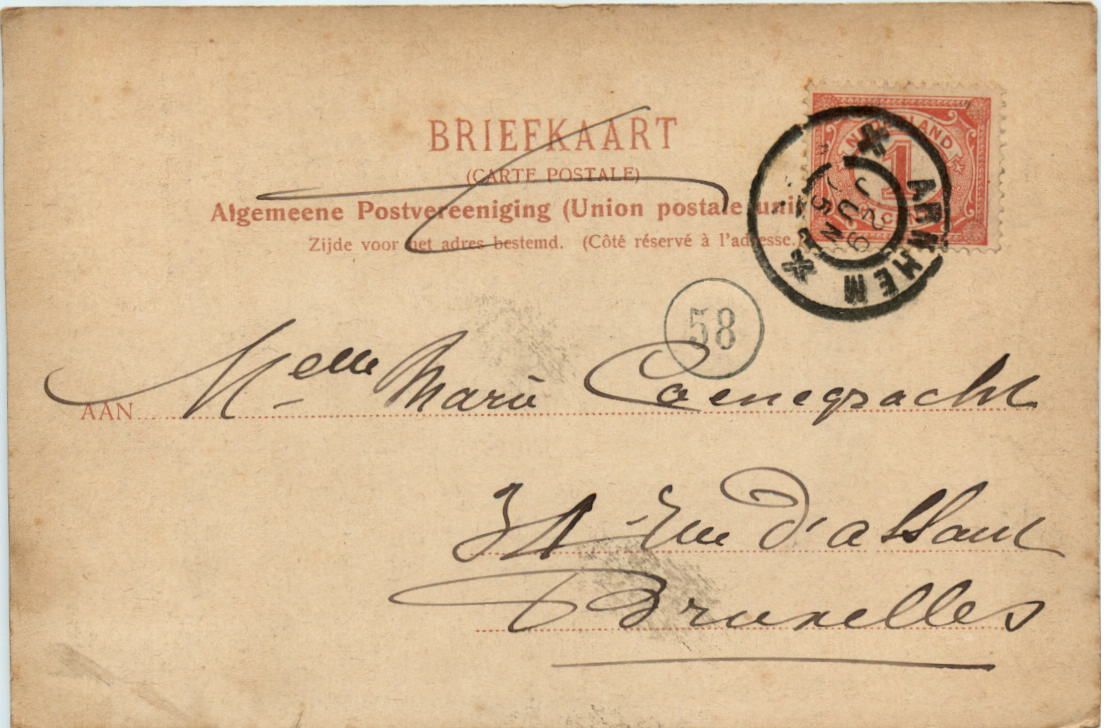 BRIEFKAART
(CARTE POSTALE)
Algemeene Postvereeniging (Union postale uni
Zijde voor het adres bestemd. (Côté réservé à l'adresse.)
1
ARNHEM
58
AAN Melle Marie Coenegracht
31 Rue d'assaut
Bruxelles